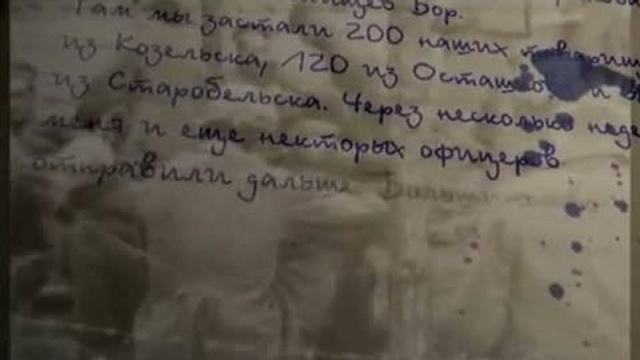 Бор.
Там мы застали 200 наших
из Козельска, 120 из
из Старобельска. Через несколько
меня и еще некторых офицеров
отправили дальше